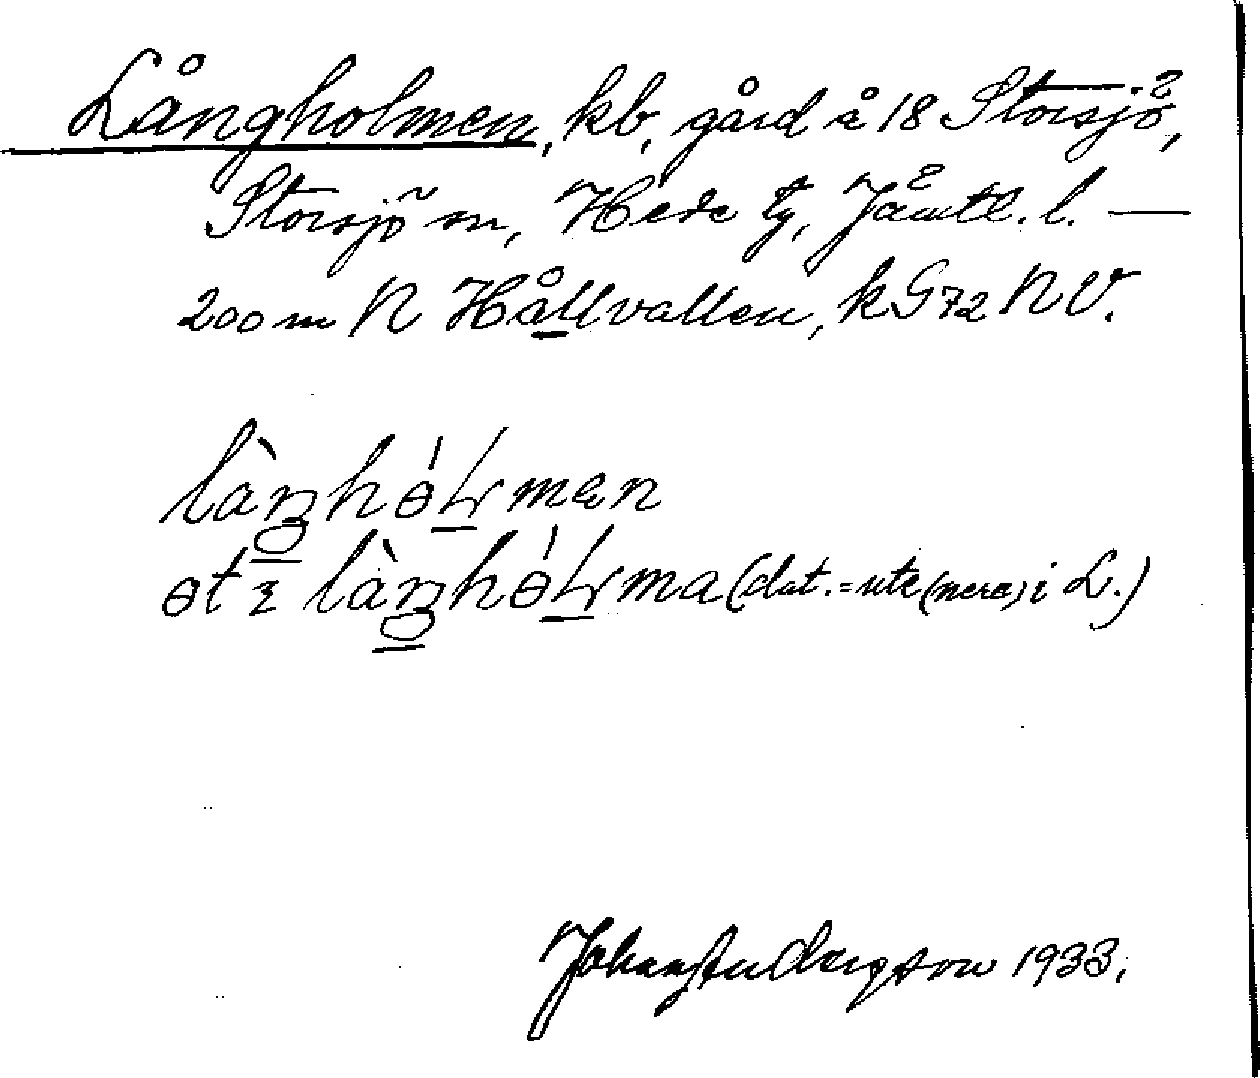 Långholmen, kb, gård å 18 Storsjö,
Storsjö sn, Hede tg, Jämtl. l. —
200 m N Hållvallen, kG72 NV.
làŋhóɫmen
ɵtɪ làŋhóɫma (dat. = ute (nere) i L.)
1933.